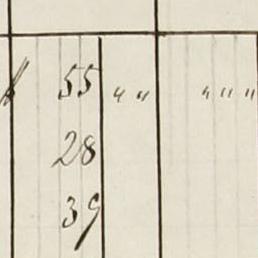 55 „ „ „ „ „
28
39